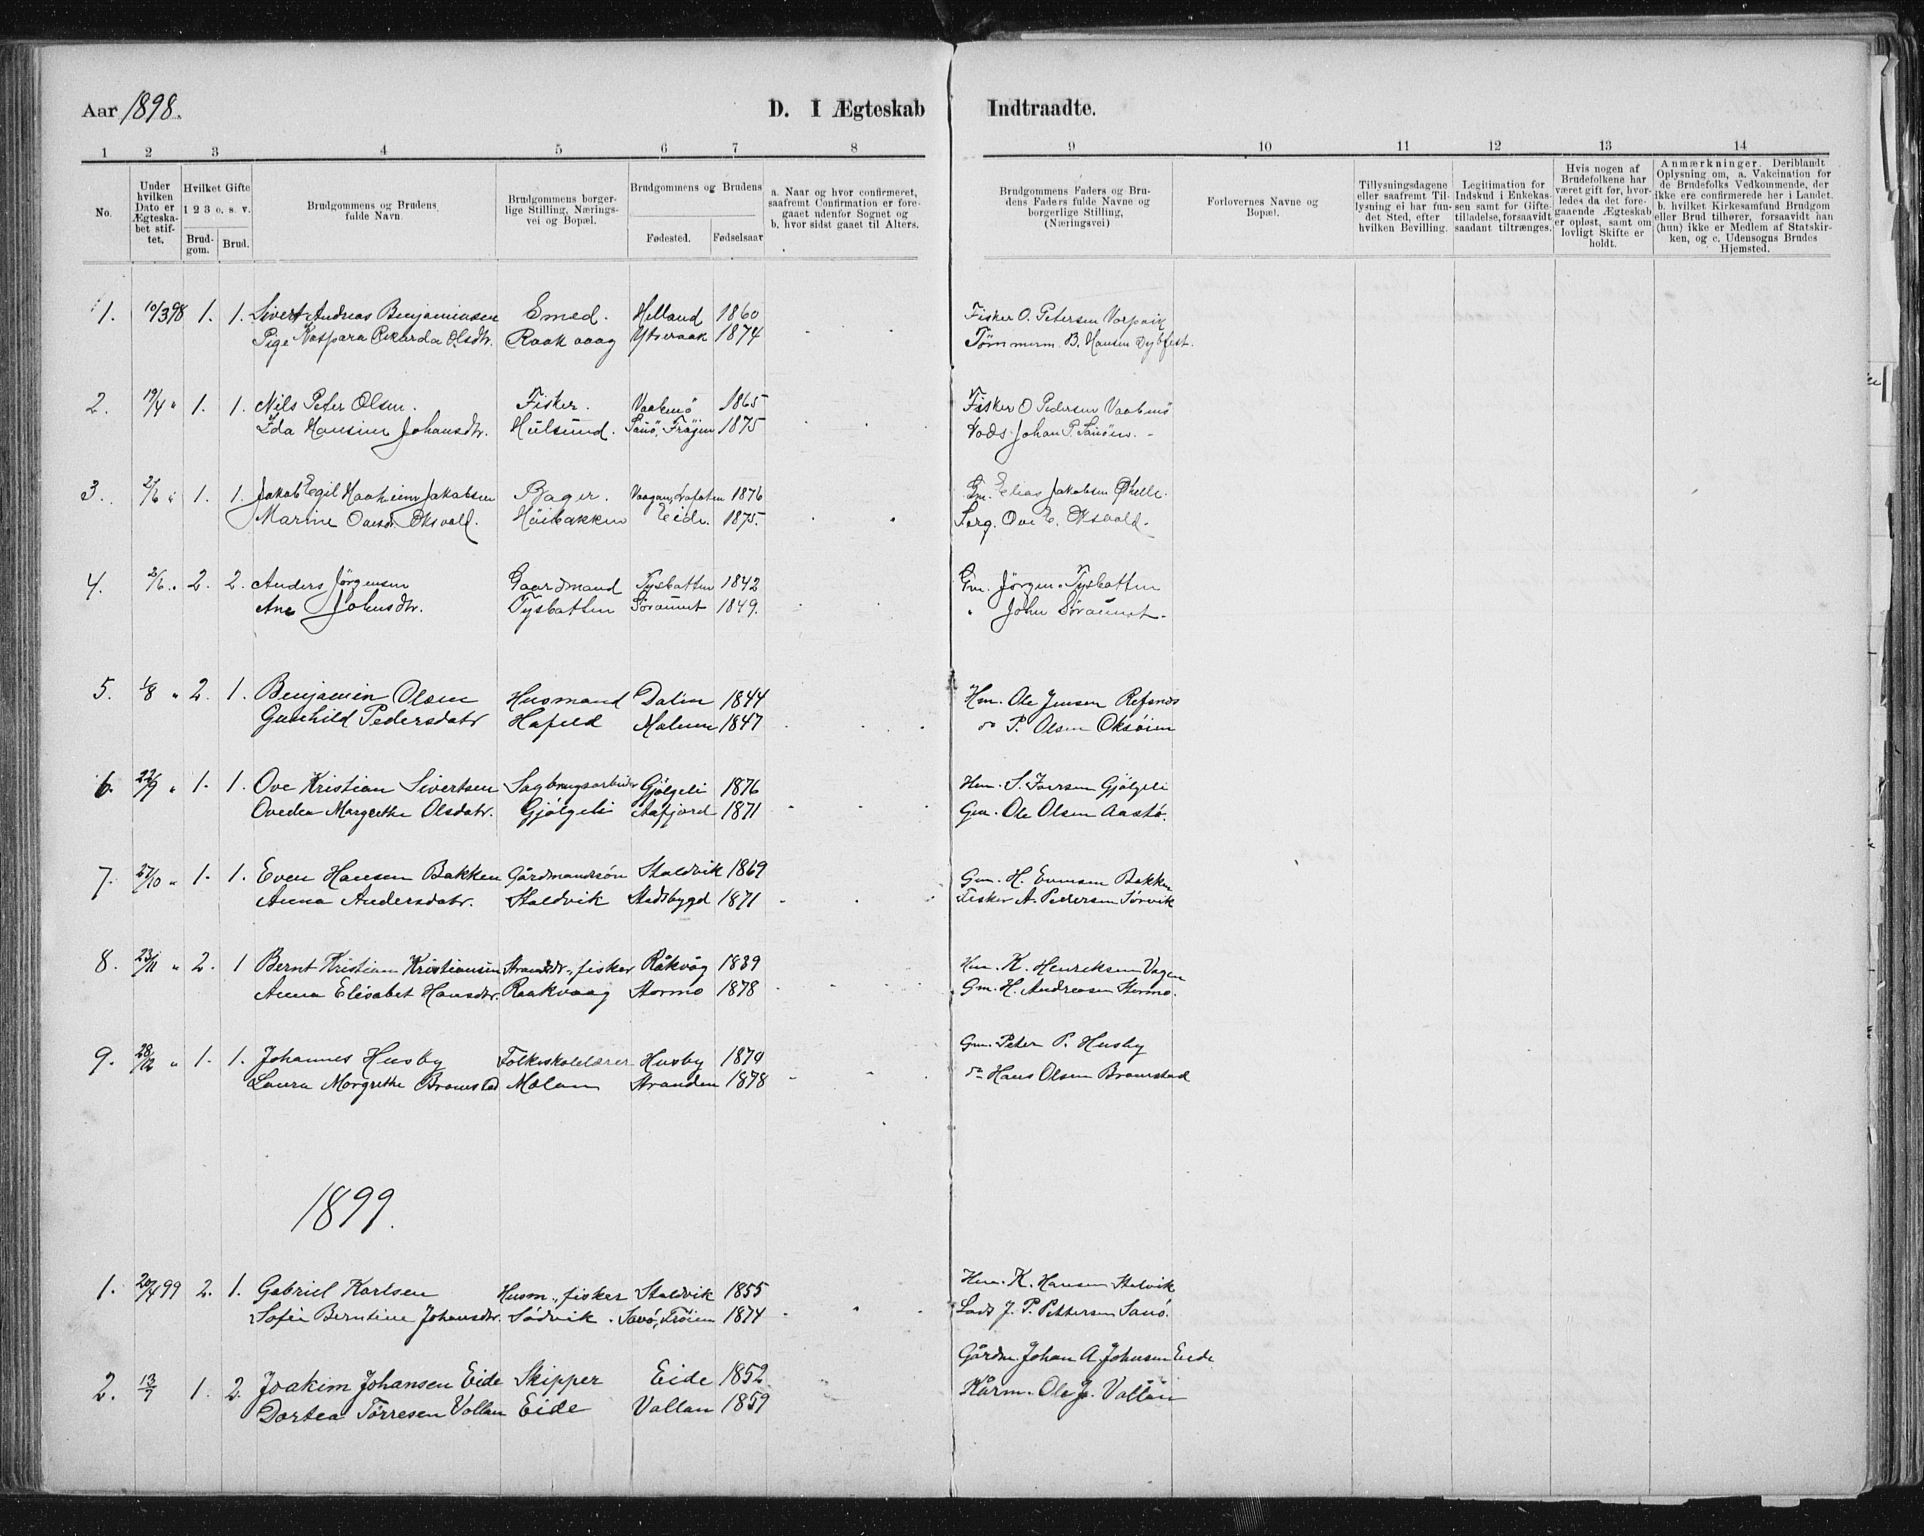 Aar 1898.
D. I Ægteskab Indtraadte.
1 2 3 4 5 6 7 8 9 10 11 12 13 14
No.
Under hvilken Dato er Ægteskabet stiftet.
Hvilket Gifte
1 2 3 o. s. v.
Brudgom. Brud.
Brudgommens og Brudens fulde Navn.
Brudgommens borgerlige Stilling, Næringsvei og Bopæl.
Brudgommens og Brudens
Fødested. Fødselsaar
a. Naar og hvor confirmeret, saafremt Confirmation er foregaaet udenfor Sognet og b. hvor sidst gaaet til Alters.
Brudgommens Faders og Brudens Faders fulde Navne og borgerlige Stilling, (Næringsvei)
Forlovernes Navne og Bopæl.
Tillysningsdagene eller saafremt Tillysning ei har fundet Sted, efter hvilken Bevilling.
Legitimation for Indskud i Enkekassen samt for Giftetilladelse, forsaavidt saadant tiltrænges.
Hvis nogen af Brudefolkene har været gift før, hvorledes da det foregaaende Ægteskab er opløst, samt om lovligt Skifte er holdt.
Anmærkninger. Deriblandt Oplysning om, a. Vakcination for de Brudefolks Vedkommende, der ikke ere confirmerede her i Landet. b. hvilket Kirkesamfund Brudgom eller Brud tilhører, forsaavidt han (hun) ikke er Medlem af Statskirken, og c. Udensogns Brudes Hjemsted.
1. 10/3 98 1. 1. Sivert Andreas Benjaminsen Smed. Helland 1860 Fisker O. Petersen Vorpvik
Pige Kaspara Rikarda Olsdtr. Raakvaag Ytreraak 1874 Tømmerm. B. Hansen Dybfest.
2. 19/4 " 1. 1. Nils Peter Olsen. Fisker. 1865 Fisker O Pedersen
Ida Hansine Johansdtr. Hülsund. Sauø, Frøjen 1875 Lods Johan P. Sauøen. -
3. 2/6 " 1. 1. Jakob Egil Haaheim Jakobsen Bager. Vaagan, Lofoten 1876 Gm. Elias Jakobsen
Marine Ovesd. Oksvold. Höibakken Eide. 1875. Serg. Ove E. Oksvold.
4. 2/6 " 2. 2. Anders Jörgensen Gaardmand Tysbotten 1842 Gm. Jörgen Tysbotten
Ane Johnsdtr. Tysbotten Söraunet 1849. " John Söraunet.
5. 1/8 " 2. 1. Benjamin Olsen Husmand Dalen 1844 Hm. Ole Jensen Refsnes
Gunhild Pedersdatr Hafeld 1847 do P. Olsen Oksöien
6. 22/9 " 1. 1. Ove Kristian Sivertsen Sagbrugsarbeider Gjölgeli 1876 Hm. S. Gjölgeli
Ovedea Margrethe Olsdatr. Gjölgeli Aafjord 1871 Gm. Ole Olsen Aastö.
7. 27/10 " 1. 1. Even Hansen Bakken Gårdmandssön Staldvik 1869 Gm. H. Evensen Bakken
Anna Andersdatr. Staldvik Stadsbygd 1871 Fisker A. Pedersen Sörvik
8. 23/11 " 2. 1 Bernt Kristian Kristiansen Strandsdr., fisker Råkvåg 1839 Hm. K. Henriksen Vagen
Anna Elisabet Hansdtr. Raakvaag Stormo 1878 Gm. H. Andreasen Stormo.
9. 28/12 " 1. 1. Johannes Husby Folkeskolelærer Husby 1874 Gm. Peter P. Husby
Laura Margrethe Bromstad Mælan Stranden 1878 do Hans Olsen Bromstad
1899.
1. 20/4 99 2. 1. Gabriel Karlsen Husm., fisker Staldvik 1855 Hm. K. Hansen Stalvik
Sofie Berntine Johansdtr. Sauø, Fröien 1874 Lods J. P. Pettersen Sauö.
2. 13/7 1. 2. Joakim Johansen Eide Skipper Eide 1852 Gårdm. Johan A. Johnsen Eide
Dortea Törresen Vollan Eide Vollan 1859 Kårm. Ole J. Vollan